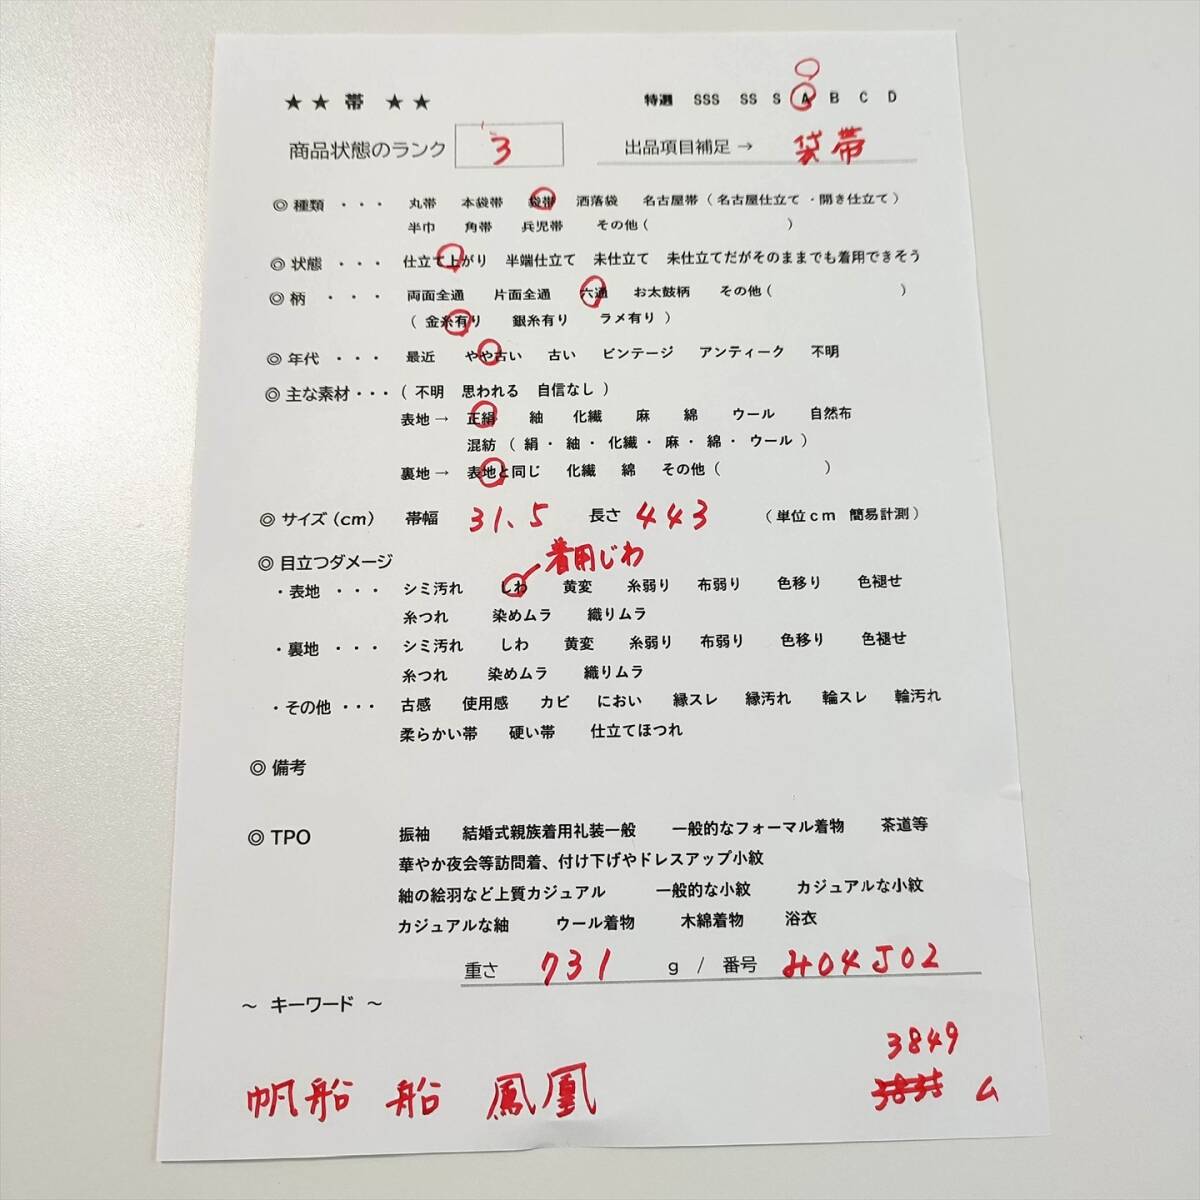 ★ ★ 帯 ★ ★ 特選 SSS SS S A B C D
商品状態のランク 3 出品項目補足 → 袋帯
◎ 種類 ・・・ 丸帯 本袋帯 袋帯 洒落袋 名古屋帯 ( 名古屋仕立て ・開き仕立て )
半巾 角帯 兵児帯 その他 ( )
◎ 状態 ・・・ 仕立て上がり 半端仕立て 未仕立て 未仕立てだがそのままでも着用できそう
◎ 柄 ・・・ 両面全通 片面全通 六通 お太鼓柄 その他 ( )
( 金糸有り 銀糸有り ラメ有り )
◎ 年代 ・・・ 最近 やや古い 古い ビンテージ アンティーク 不明
◎ 主な素材・・・ ( 不明 思われる 自信なし )
表地 → 正絹 紬 化繊 麻 綿 ウール 自然布
混紡 ( 絹・ 紬・ 化繊・ 麻・ 綿・ ウール )
裏地 → 表地と同じ 化繊 綿 その他 ( )
◎ サイズ (cm) 帯幅 31.5 長さ 443 (単位cm 簡易計測)
着用じわ
◎ 目立つダメージ
・表地 ・・・ シミ汚れ しわ 黄変 糸弱り 布弱り 色移り 色褪せ
糸つれ 染めムラ 織りムラ
・裏地 ・・・ シミ汚れ しわ 黄変 糸弱り 布弱り 色移り 色褪せ
糸つれ 染めムラ 織りムラ
・その他 ・・・ 古感 使用感 カビ におい 縁スレ 縁汚れ 輪スレ 輪汚れ
柔らかい帯 硬い帯 仕立てほつれ
◎ 備考
◎ TPO 振袖 結婚式親族着用礼装一般 一般的なフォーマル着物 茶道等
華やか夜会等訪問着、付け下げやドレスアップ小紋
紬の絵羽など上質カジュアル 一般的な小紋 カジュアルな小紋
カジュアルな紬 ウール着物 木綿着物 浴衣
重さ 731 g / 番号 み04J02
～ キーワード ～
3849
帆船 船 鳳凰 3835 ム